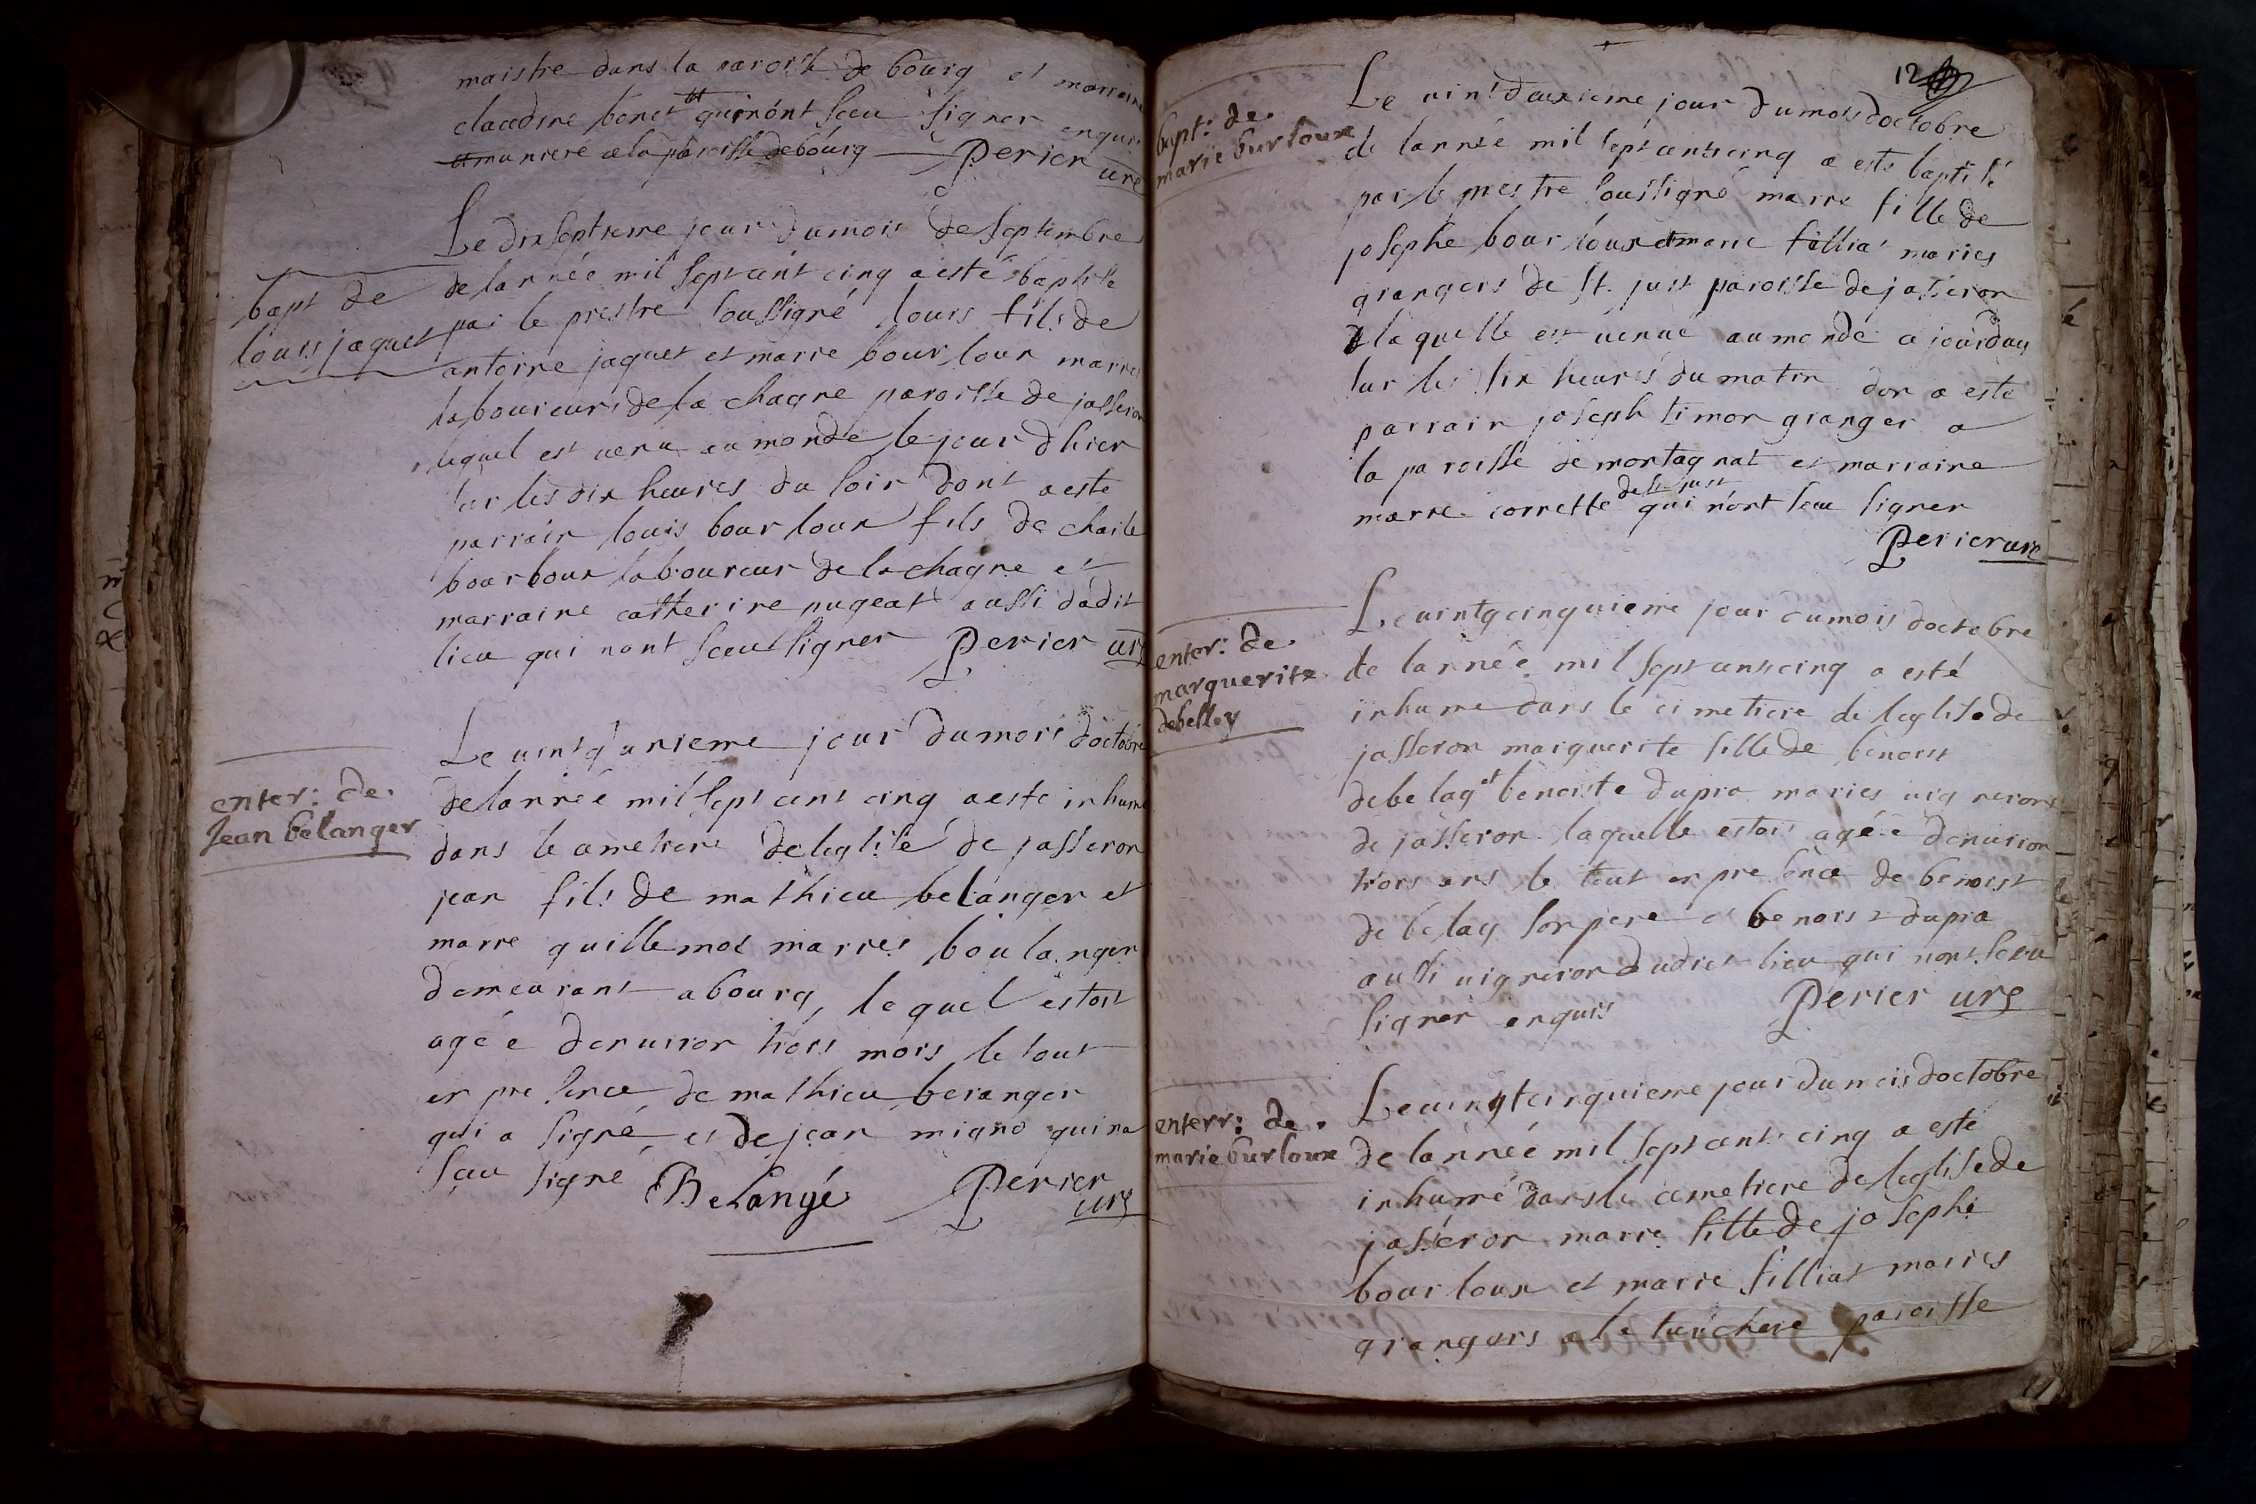 maistre dans la paroisse de bourg et marraine
claudine bonet qui n'ont sceu signer enquis
de la paroisse de bourg Perier curé
bapt de
louis jaquet
Le dixseptieme jour du mois de septembre
de lannée mil sept cent cinq a esté baptisé
par le prestre soussigné louis fils de
antoine jaquet et marie bourloux mariés
laboureurs de la chagne paroisse de jasseron
lequel est venu au monde le jour dhier
sur les dix heures du soir dont a esté
parrain louis bourloux fils de charle
bourboux laboureur de la chagne et
marraine catherine pugeat aussi dudit
lieu qui nont sceu signer Perier curé
enter: de.
Jean belanger
Le vint unieme jour du mois doctobre
de lannée mil sept cent cinq a esté inhumé
dans le cimetiere de leglise de jasseron
jean fils de mathieu belanger et
marie guillemot maries boulanger
demeurant a bourg, lequel estoit
agée denviron trois mois le tout
en presence de mathieu beranger
qui a signé et de jean migno qui na
sceu signé Belangé Perier
curé
12
bapt: de.
marie burloux
Le vint deuxieme jour du mois doctobre
de lannée mil sept cent cinq a esté baptisé
par le prestre soussigné marie fille de
josephe bourloux et marie filliat maries
grangers de st. just paroisse de jasseron
laquelle est venue au monde a jourduy
sur les six heures du matin don a esté
parrain joseph timon granger a
la paroisse de montagnat et marraine
marie corrette de st just qui n'ont sceu signer
Perier curé
enter: de.
marguerite
debelley
Le vintqcinquieme jour du mois doctobre
de lannée mil sept cent cinq a esté
inhume dans le cimetiere de leglise de
jasseron marguerite fille de benoist
debelay et benoiste dupra maries vignerons
de jasseron laquelle estoit agéé denviron
trois ans le tout en presence de benoist
de belay son pere et benoist dupra
aussi vigneron dudict lieu qui nont sceu
signer enquis Perier curé
enterr: de.
marie burloux
Le vingtcinquieme jour du mois doctobre
de lannée mil sept cent cinq a esté
inhumé dans le cemetiere de leglise de
jasseron marie fille de josephe
bourloux et marie filliat maries
grangers a la tuichere paroisse